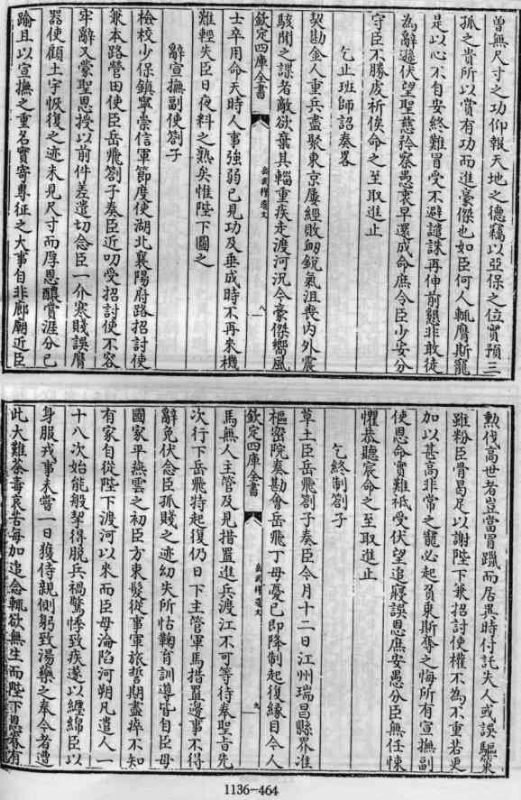 曾無尺寸之功仰報天地之德竊以亞保之位實預三
孤之貴所以賞有功而進豪傑也如臣何人輒膺斯寵
是以心不自安終難冒受不避譴誅再伸前懇非敢徒
為辭遜伏望聖慈矜察愚衷早還成命庶令臣少安分
守臣不勝虔祈俟命之至取進止
乞止班師詔奏畧
契勘金人重兵盡聚東京屢經敗衂銳氣沮喪內外震
駭聞之諜者敵欲棄其輜重疾走渡河況今豪傑嚮風
欽定四庫全書 岳武穆遺文 八
士卒用命天時人事強弱已見功及垂成時不再來機
難輕失臣日夜料之熟矣惟陛下圖之
辭宣撫副使劄子
檢校少保鎮寧崇信軍節度使湖北襄陽府路招討使
兼本路營田使臣岳飛劄子奏臣近叨受招討使不容
牢辭又蒙聖恩授以前件差遣切念臣一介寒賤誤膺
器使顧土宇恢復之迹未見尺寸而厚恩醲賞涯分已
踰且以宣撫之重名實寄專征之大事自非廊廟近臣
勲伐高世者豈當冒躐而居異時付託失人或誤驅策
雖粉臣骨曷足以謝陛下兼招討使權不為不重若更
加以甚高非常之寵必起負乘斯辱之悔所有宣撫副
使恩命實難祗受伏望追寢誤恩庶安愚分臣無任悚
懼恭聽宸命之至取進止
乞終制劄子
草土臣岳飛劄子奏臣今月十二日江州瑞昌縣界准
樞密院奏勘會岳飛丁母憂已即降制起復緣目今人
欽定四庫全書 岳武穆遺文 九
馬無人主管及見措置進兵渡江不可等待奉聖旨先
次行下岳飛特起復仍日下主管軍馬措置邊事不得
辭免伏念臣孤賤之迹幼失所怙鞠育訓導皆自臣母
國家平燕雲之初臣方束髮從事軍旅誓期盡瘁不知
有家自從陛下渡河以來而臣母淪陷河朔凡遣人一
十八次始能般挈得脫兵禍驚悸致疾遂以纏綿臣以
身服戎事未嘗一日獲侍親側躬致湯藥之奉今者遭
此大難荼毒哀苦每加追念輒欲無生而陛下恩眷有
1136-464